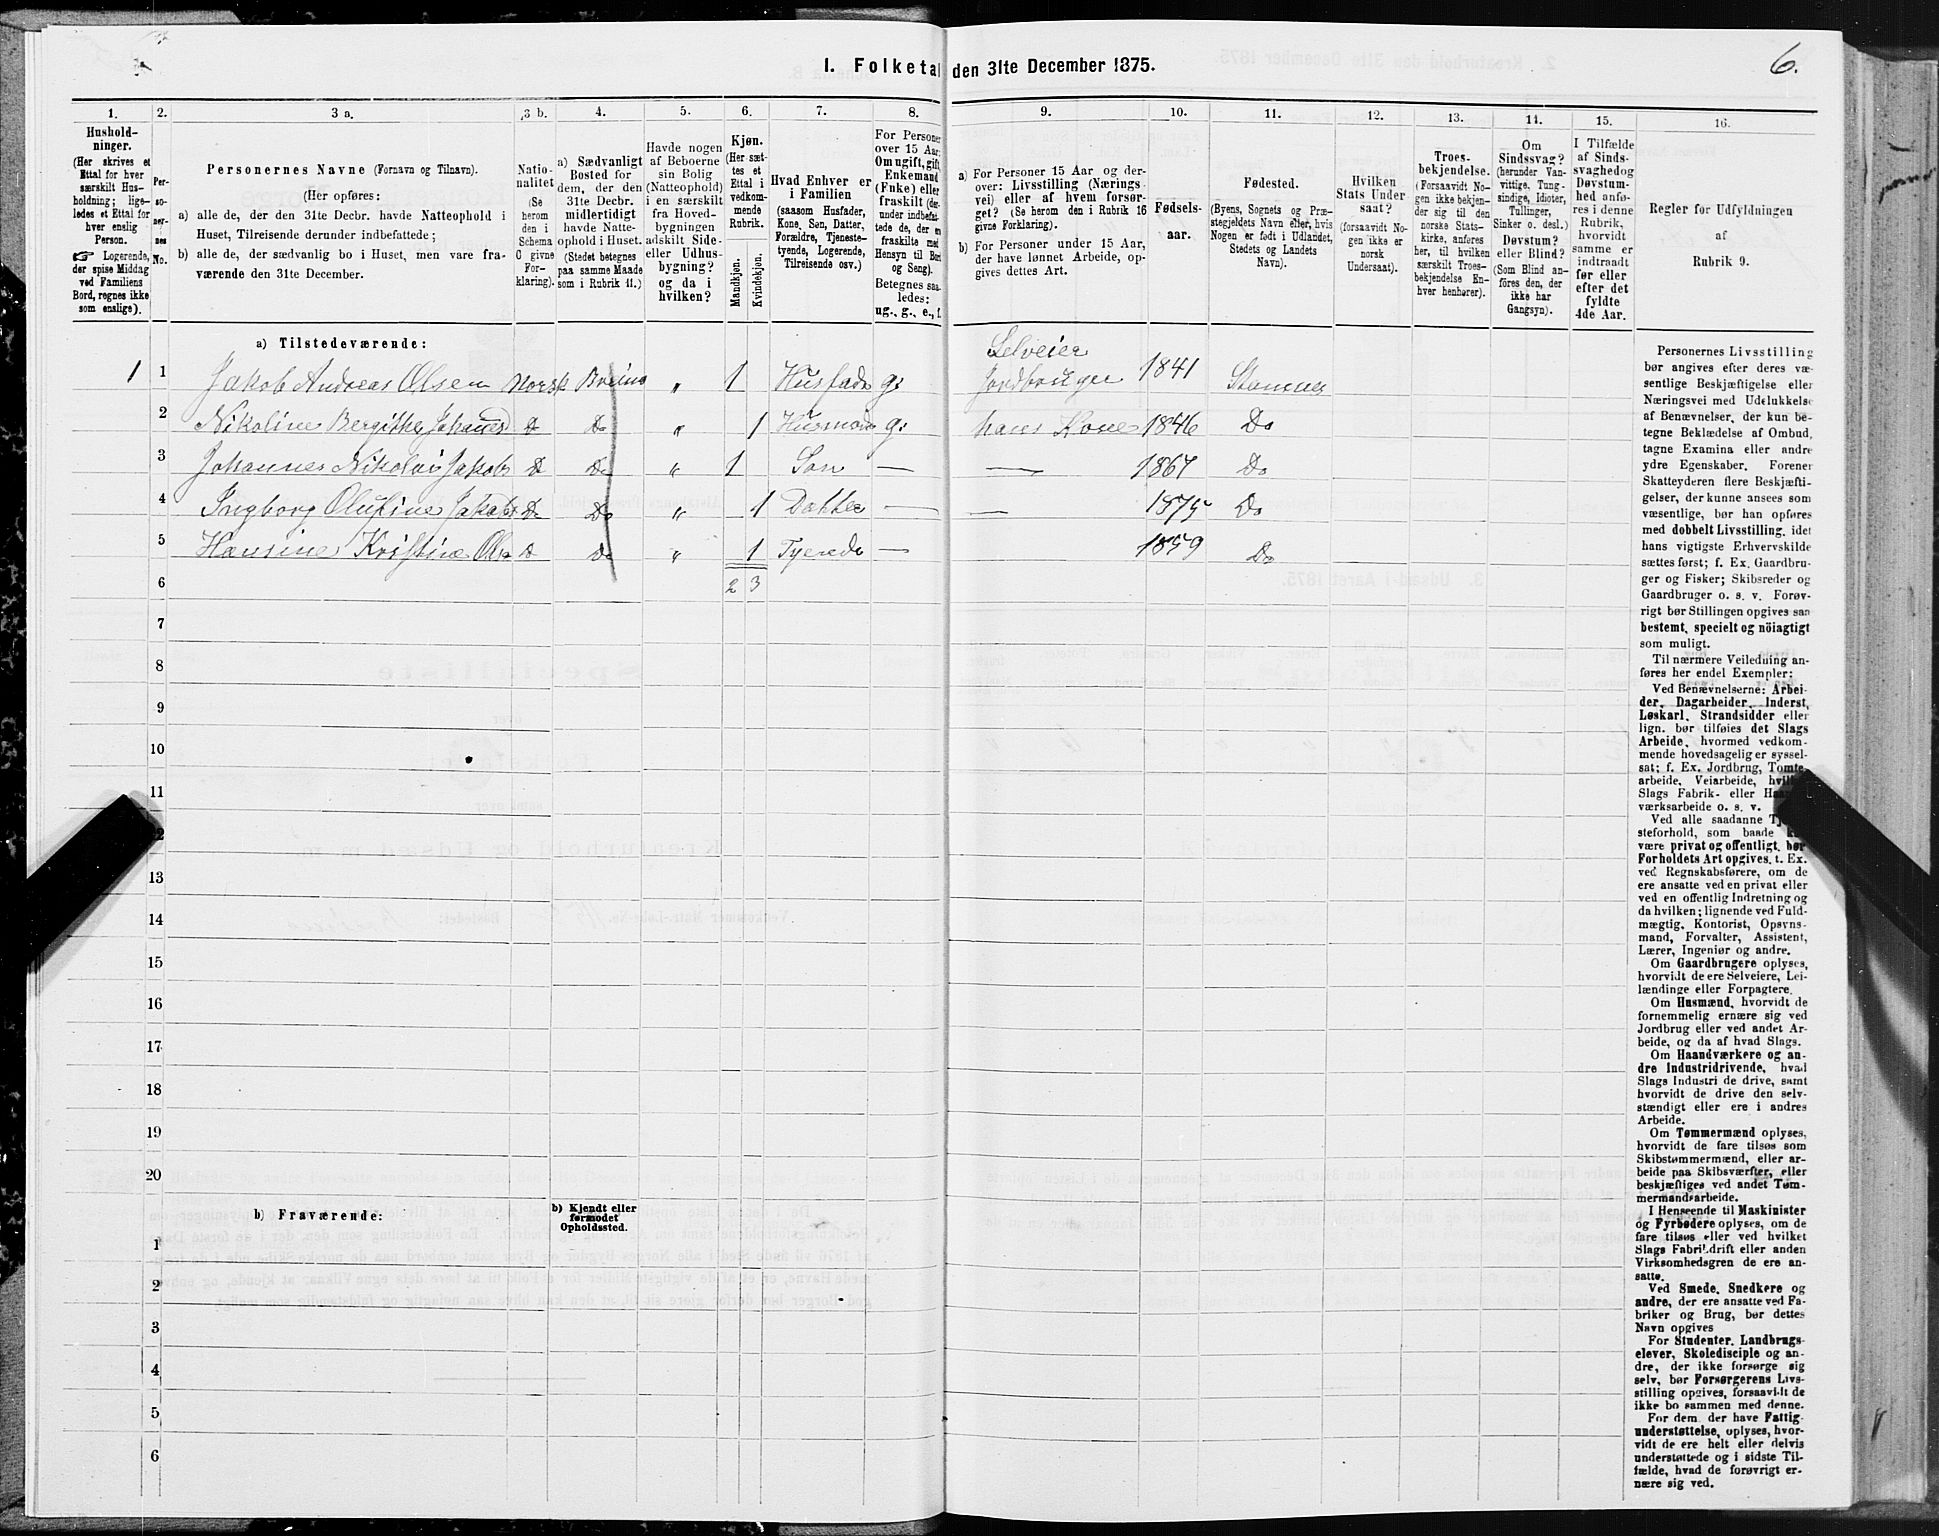 I. Folketal den 31te December 1875.
6.
1.
Hushold-
ninger.
(Her skrives et
Ettal for hver
særskilt Hus-
holdning; lige-
ledes et Ettal for
hver enslig
Person.
☞ Logerende,
der spise Middag
ved Familiens
Bord, regnes ikke
som enslige).
2.
Per-
so-
ner-
nes
No.
3 a.
Personernes Navne (Fornavn og Tilnavn).
(Her opføres:
a) alle de, der den 31te Decbr. havde Natteophold i
Huset, Tilreisende derunder indbefattede;
b) alle de, der sædvanlig bo i Huset, men vare fra-
værende den 31te December.
3 b.
Natio-
nalitet
(Se
herom
den i
Schema
C givne
For-
klaring).
4.
a) Sædvanligt
Bosted for
dem, der den
31te Decbr.
midlertidigt
havde Natte-
ophold i Huset.
(Stedet betegnes
paa samme Maade
som i Rubrik 11.)
5.
Havde nogen
af Beboerne
sin Bolig
(Natteophold)
i en særskilt
fra Hoved-
bygningen
adskilt Side-
eller Udhus-
bygning?
og da i
hvilken?
6.
Kjøn.
(Her sæt-
tes et
Ettal i
vedkom-
mende
Rubrik.
Mandkjøn.
Kvindekjøn.
7.
Hvad Enhver er
i Familien
(saasom Husfader,
Kone, Søn, Datter,
Forældre, Tjeneste-
tyende, Logerende,
Tilreisende osv.)
8.
For Personer
over 15 Aar:
Om ugift, gift,
Enkemand
(Enke) eller
fraskilt (der-
under indbefat-
tede de, der er
fraskilte med
Hensyn til Bord
og Seng).
Betegnes saa-
ledes:
ug., g., e., f.
9.
a) For Personer 15 Aar og der-
over: Livsstilling (Nærings-
vei) eller af hvem forsør-
get? (Se herom den i Rubrik 16
givne Forklaring).
b) For Personer under 15 Aar,
der have lønnet Arbeide, op-
gives dettes Art.
10.
Fødsels-
aar.
11.
Fødested.
(Byens, Sognets og Præ-
stegjeldets Navn eller, hvis
Nogen er født i Udlandet,
Stedets og Landets
Navn).
12.
Hvilken
Stats Under-
saat?
(forsaavidt No-
gen ikke er
norsk
Undersaat).
13.
Troes-
bekjendelse.
(Forsaavidt No-
gen ikke bekjen-
der sig til den
norske Stats-
kirke, anføres
her, til hvilken
særskilt Troes-
bekjendelse En-
hver henhører).
14.
Om
Sindssvag?
(herunder Van-
vittige, Tung-
sindige, Idioter,
Tullinger,
Sinker o. desl.)
Døvstum?
eller Blind?
(Som Blind an-
føres den, der
ikke har
Gangsyn).
15.
I Tilfælde
af Sinds-
svaghed og
Døvstum-
hed anfø-
res i denne
Rubrik,
hvorvidt
samme er
indtraadt
før eller
efter det
fyldte
4de Aar.
16.
Regler for Udfyldningen
af
Rubrik 9.
a) Tilstedeværende:
1 1 Jakob Andreas Olsen Norsk „ 1 Husfader g: Selveier Jordbruger 1841 Stamnes
2 Nikoline Bergithe Do Do „ 1 Husmoder g: hans Kone 1846 Do
3 Johannes Nikolai Jakobs Do Do „ 1 Søn — — 1867 Do
4 Ingborg Olufine Jakobs Do Do „ 1 Datter — — 1875 Do
5 Hansine Kristine Ols Do Do „ 1 Tyende — 1859 Do
6 2 3
7
8
9
10
11
12
13
14
15
16
17
18
19
20
b) Fraværende:
b) Kjendt eller
formodet
Opholdssted.
1
2
3
4
5
6
Personernes Livsstilling
bør angives efter deres væ-
sentlige Beskjæftigelse eller
Næringsvei med Udelukkelse
af Benævnelser, der kun be-
tegne Beklædelse af Ombud,
tagne Examina eller andre
ydre Egenskaber. Forener
Skatteyderen flere Beskjæfti-
gelser, der kunne ansees som
væsentlige, bør han opføres
med dobbelt Livsstilling, idet
hans vigtigste Erhvervskilde
sættes først; f. Ex. Gaardbru-
ger og Fisker; Skibsreder og
Gaardbruger o. s. v. Forøv-
rigt bør Stillingen opgives saa
bestemt, specielt og nöiagtigt
som muligt.
Til nærmere Veiledning an-
føres her endel Exempler:
Ved Benævnelserne: Arbei-
der, Dagarbeider, Inderst,
Løskarl, Strandsidder eller
lign. bør tilføies det Slags
Arbeide, hvormed vedkom-
mende hovedsagelig er syssel-
sat; f. Ex. Jordbrug, Tomte-
arbeide, Veiarbeide,
Slags Fabrik- eller
værksarbeide o. s. v.
Ved alle saadanne
steforhold, som baade
være privat og offentligt, bør
Forholdets Art opgives, t. Ex.
ved Regnskabsførere, om de
ere ansatte ved en privat eller
ved en offentlig Indretning og
da hvilken; lignende ved Fuld-
mægtig, Kontorist, Opsyns-
mand, Forvalter, Assistent,
Lærer, Ingeniør og andre.
Om Gaardbrugere oplyses,
hvorvidt de ere Selveiere, Lei-
lændinge eller Forpagtere.
Om Husmænd, hvorvidt de
fornemmelig ernære sig ved
Jordbrug eller ved andet Ar-
beide, og da af hvad Slags.
Om Haandværkere og an-
dre Industridrivende, hvad
Slags Industri de drive, samt
hvorvidt de drive den selv-
stændigt eller ere i andres
Arbeide.
Om Tømmermænd oplyses,
hvorvidt de fare tilsøs som
Skibstømmermænd, eller ar-
beide paa Skibsværfter, eller
beskjæftiges ved andet Tøm-
mermandsarbeide.
I Henseende til Maskinister
og Fyrbødere oplyses, om de
fare tilsøs eller ved hvilket
Slags Fabrikdrift eller anden
Virksomhedsgren de ere an-
satte.
Ved Smede, Snedkere og
andre, der ere ansatte ved Fa-
briker og Brug, bør dettes
Navn opgives
For Studenter, Landbrugs-
elever, Skoledisciple og an-
dre, der ikke forsørge sig
selv, bør Forsørgerens Livs-
stilling opgives, forsaavidt de
ikke bo sammen med denne.
For dem, der have Fattig-
understøttelse, oplyses, hvor-
vidt de ere helt eller delvis
understøttede og i sidste Til-
fælde, hvad de forøvrigt er-
nære sig ved.